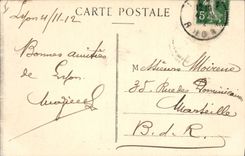 Lyon 4/11-12
CARTE POSTALE
5c
RHONE
Bonnes amitiés
de Lyon
Messieurs Moirenc
35. Rue des Dominicaines
Marseille
B. d. R.